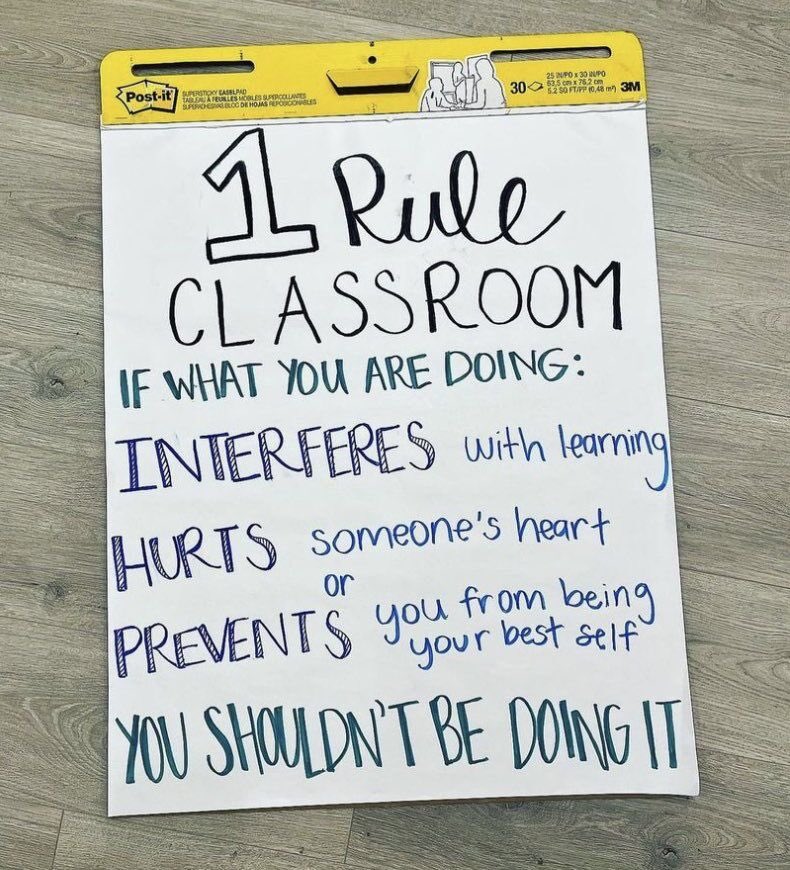 Post-it
SUPERSTICKY EASEL PAD
TABLEAU À FEUILLES MOBILES SUPERCOLLANTES
SUPERADHESIVAS BLOC DE HOJAS REPOSICIONABLES
30
25 IN/PO x 30 IN/PO
63,5 cm x 76,2 cm
5.2 SQ FT/PP (0,48 m²)
3M
1 Rule
CLASSROOM
IF WHAT YOU ARE DOING:
INTERFERES with learning
HURTS someone's heart
or
PREVENTS you from being
your best self
YOU SHOULDN'T BE DOING IT